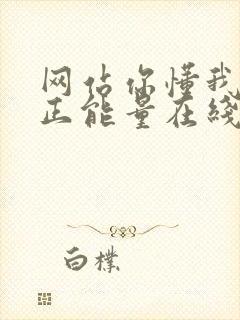 网站你懂我
正能量在线
白朴